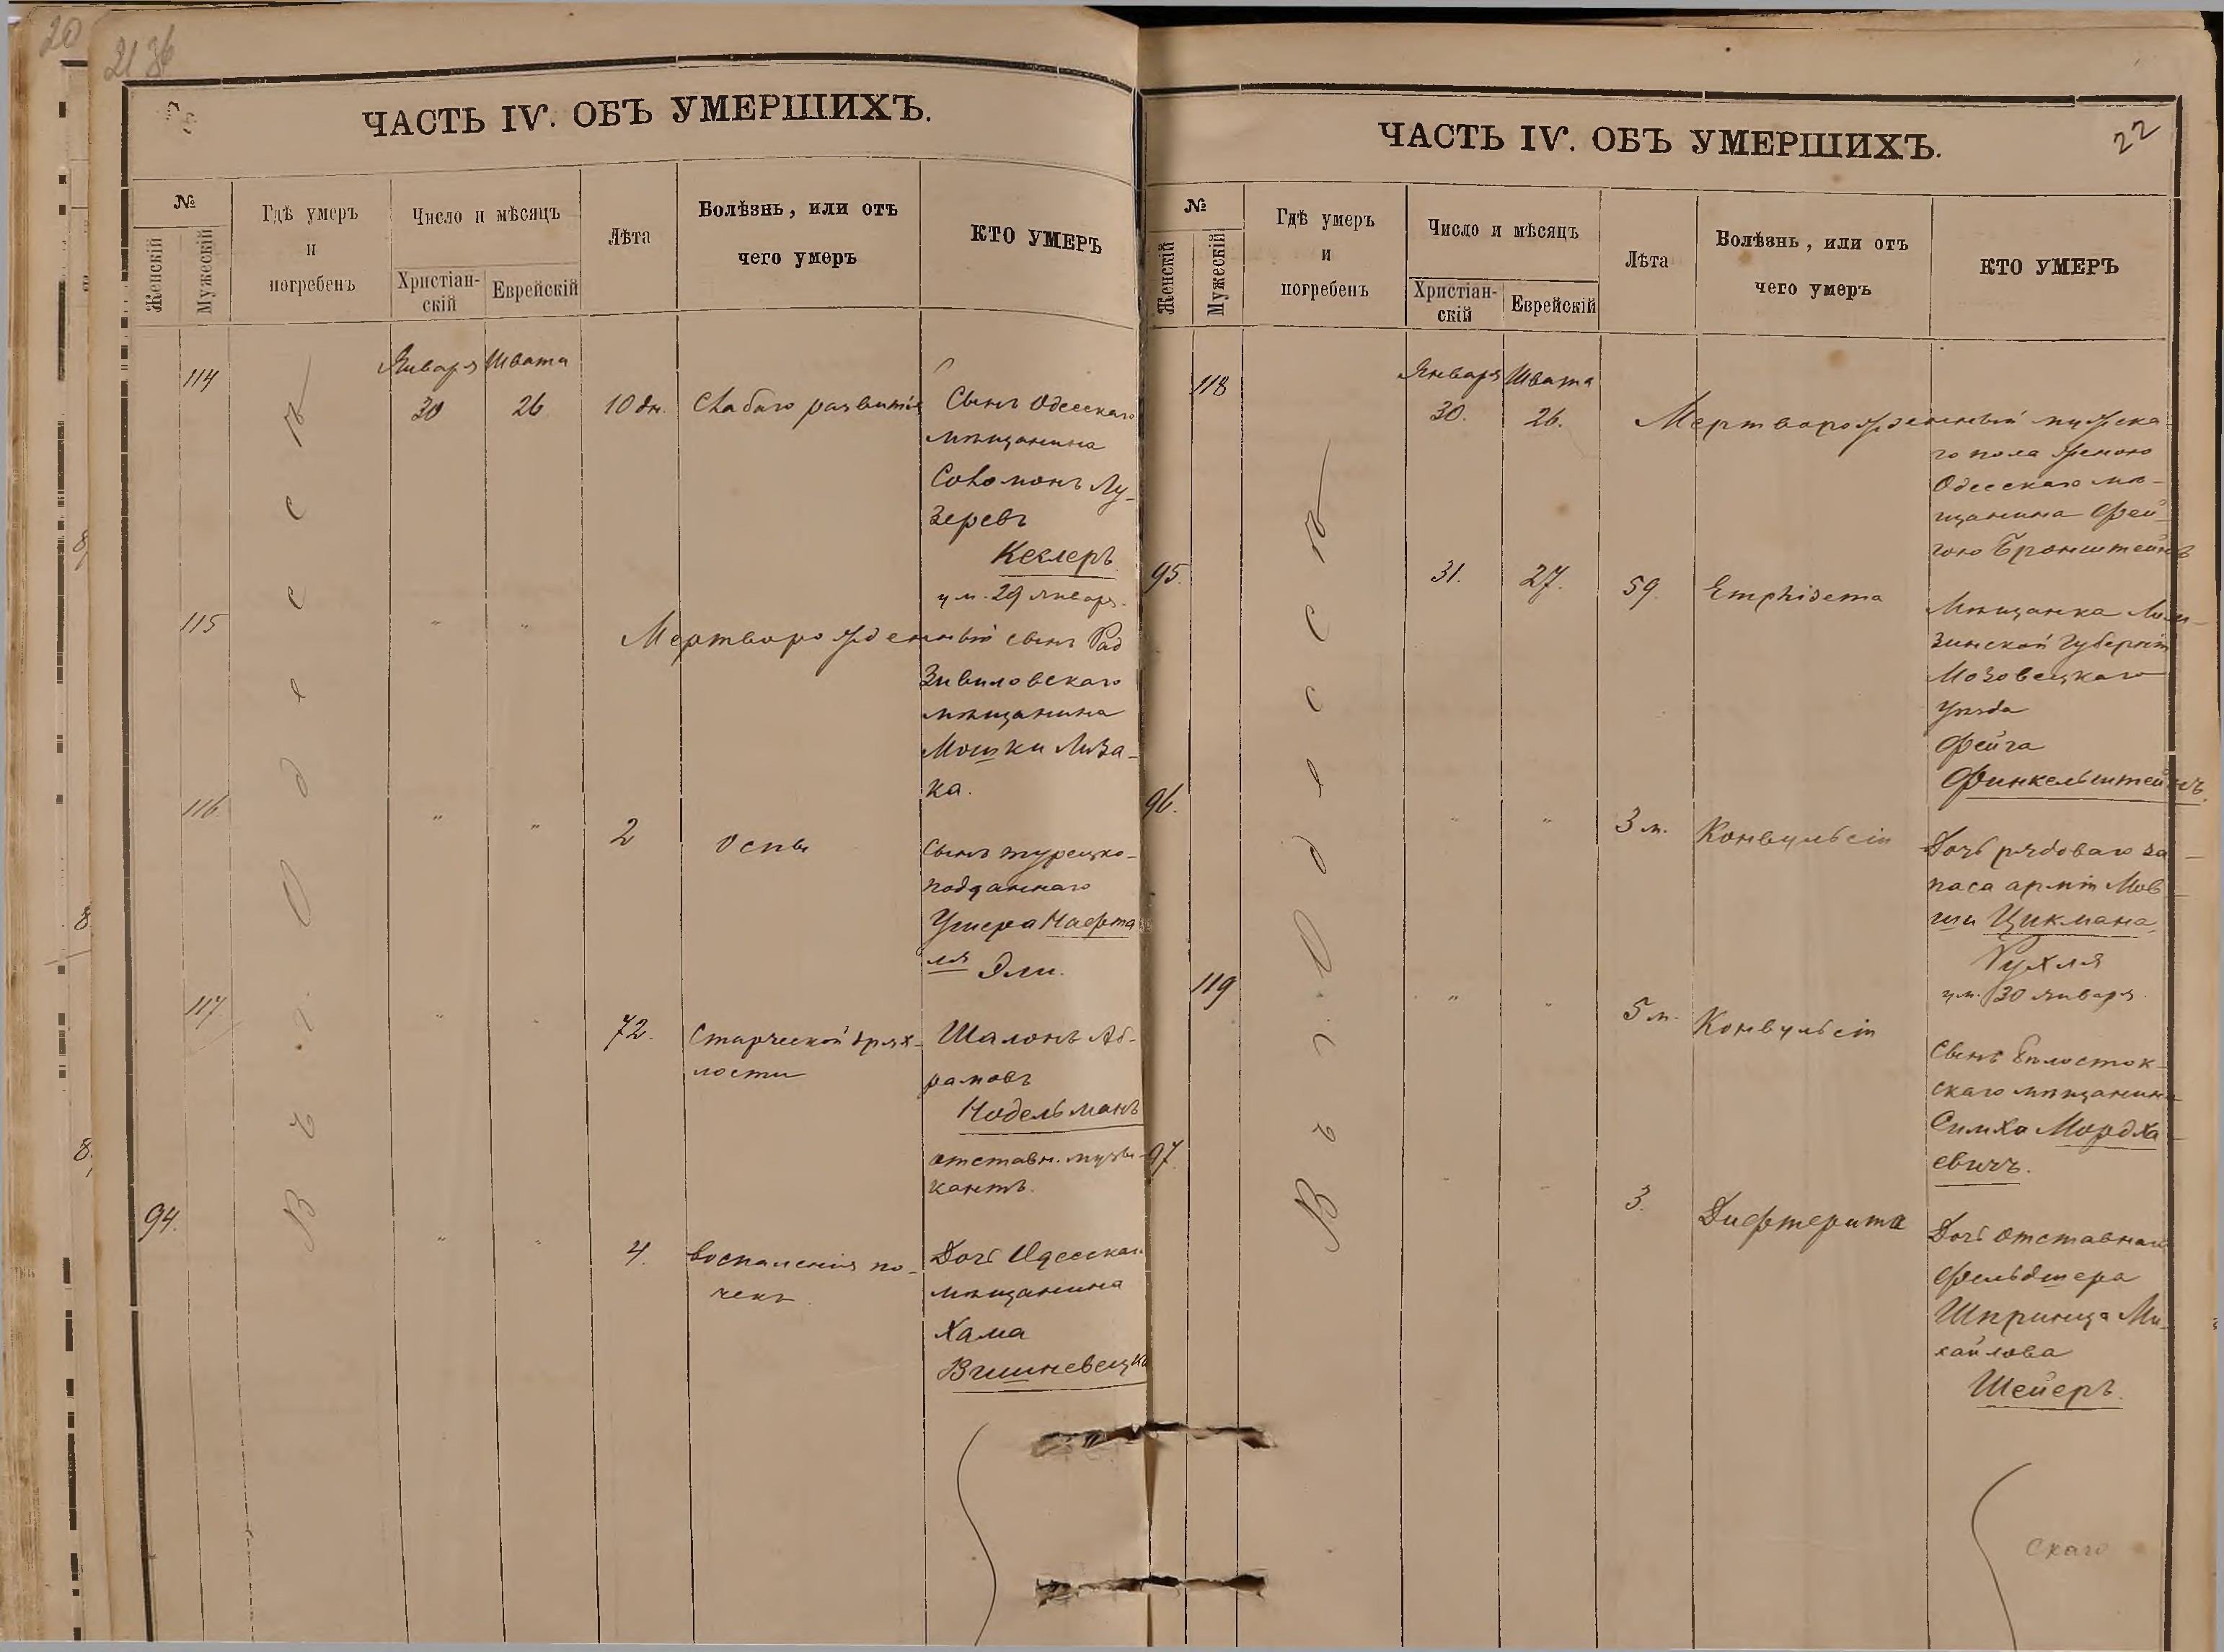 20
21 36
ЧАСТЬ IV. ОБЪ УМЕРШИХЪ.
№
Женскій
Мужескій
Гдѣ умеръ
и
погребенъ
Число и мѣсяцъ
Христіан-
скій
Еврейскій
Лѣта
Болѣзнь, или отъ
чего умеръ
КТО УМЕРЪ
Въ г. Одессѣ
Января Швата
114 30 26 10 дн. Слабаго развитія Сынъ Одесскаго
мѣщанина
Соломонъ Лу-
зеревъ
Кеглеръ
ум. 29 января.
115 " " Мертворожденный сынъ Рад
зивиловскаго
мѣщанина
Мошки Лиза-
ка.
116 " " 2 Оспы Сынъ турецко-
подданнаго
Ушера Нафта
ля Эли.
117 " " 72. Старческой дрях- Шаломъ Аб-
лости рамовъ
Нодельманъ
отставн. музы-
кантъ.
94. " " 4. Воспаленія по- Дочь Одесскаго
чекъ мѣщанина
Хама
Вишневецка
ЧАСТЬ IV. ОБЪ УМЕРШИХЪ.
22
№
Женскій
Мужескій
Гдѣ умеръ
и
погребенъ
Число и мѣсяцъ
Христіан-
скій
Еврейскій
Лѣта
Болѣзнь, или отъ
чего умеръ
КТО УМЕРЪ
Въ г. Одессѣ
Января Швата
118 30. 26. Мертворожденный мужска-
го пола женою
Одесскаго мѣ-
щанина Фей-
гою Бронштейнъ
95. 31. 27. 59. Emphisema Мѣщанка Лом-
зинской Губерніи
Мозовецкаго
уѣзда
Фейга
Финкельштейнъ.
96. " " 3 м. Конвульсіи Дочь рядоваго за-
паса арміи Мов-
ши Цикмана,
Рухля
ум. 30 января.
119 " " 5 м. Конвульсіи Сынъ Бѣлосток-
скаго мѣщанина
Симха Мордха-
евичъ.
97 " " 3. Дифтерита Дочь отставнаго
фельдшера
Шпринца Ми-
хайлова
Шейеръ.
скаго